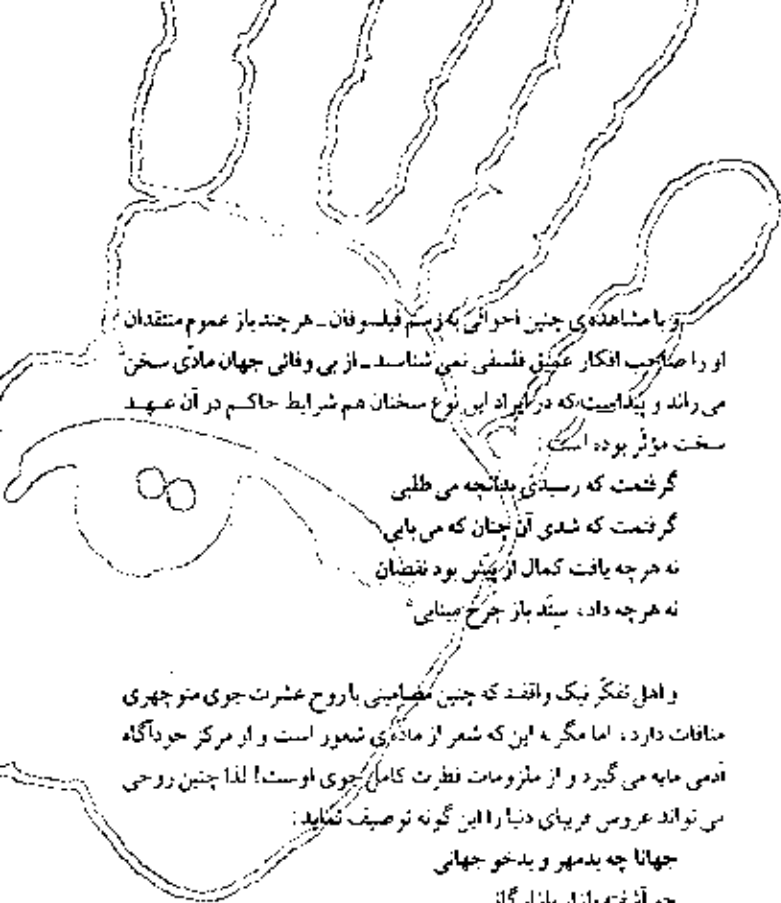 و با مشاهده‌ی چنین احوالی به رسم فیلسوفان ـ هر چند باز عموم منتقدان
او را صاحب افکار عمیق فلسفی نمی شناسند ـ از بی وفائی جهان مادّی سخن
می راند و پیداست که در ایراد این نوع سخنان هم شرایط حاکم در آن عهد
سخت مؤثر بوده است :
گرفتمت که رسیدی بدانچه می طلبی
گرفتمت که شدی آن چنان که می بایی
نه هر چه یافت کمال از پیش بود نقصان
نه هر چه داد، ستد باز چرخ مینایی
و اهل تفکّر نیک واقفند که چنین مضامینی با روح عشرت جوی منوچهری
منافات دارد، اما مگر نه این که شعر از ماده‌ی شعور است و از مرکز خودآگاه
آدمی مایه می گیرد و از ملزومات فطرت کامل جوی اوست! لذا چنین روحی
می تواند عروس فریبای دنیا را این گونه توصیف نماید :
جهانا چه بدمهر و بدخو جهانی
چو آشفته بازار بازارگانی